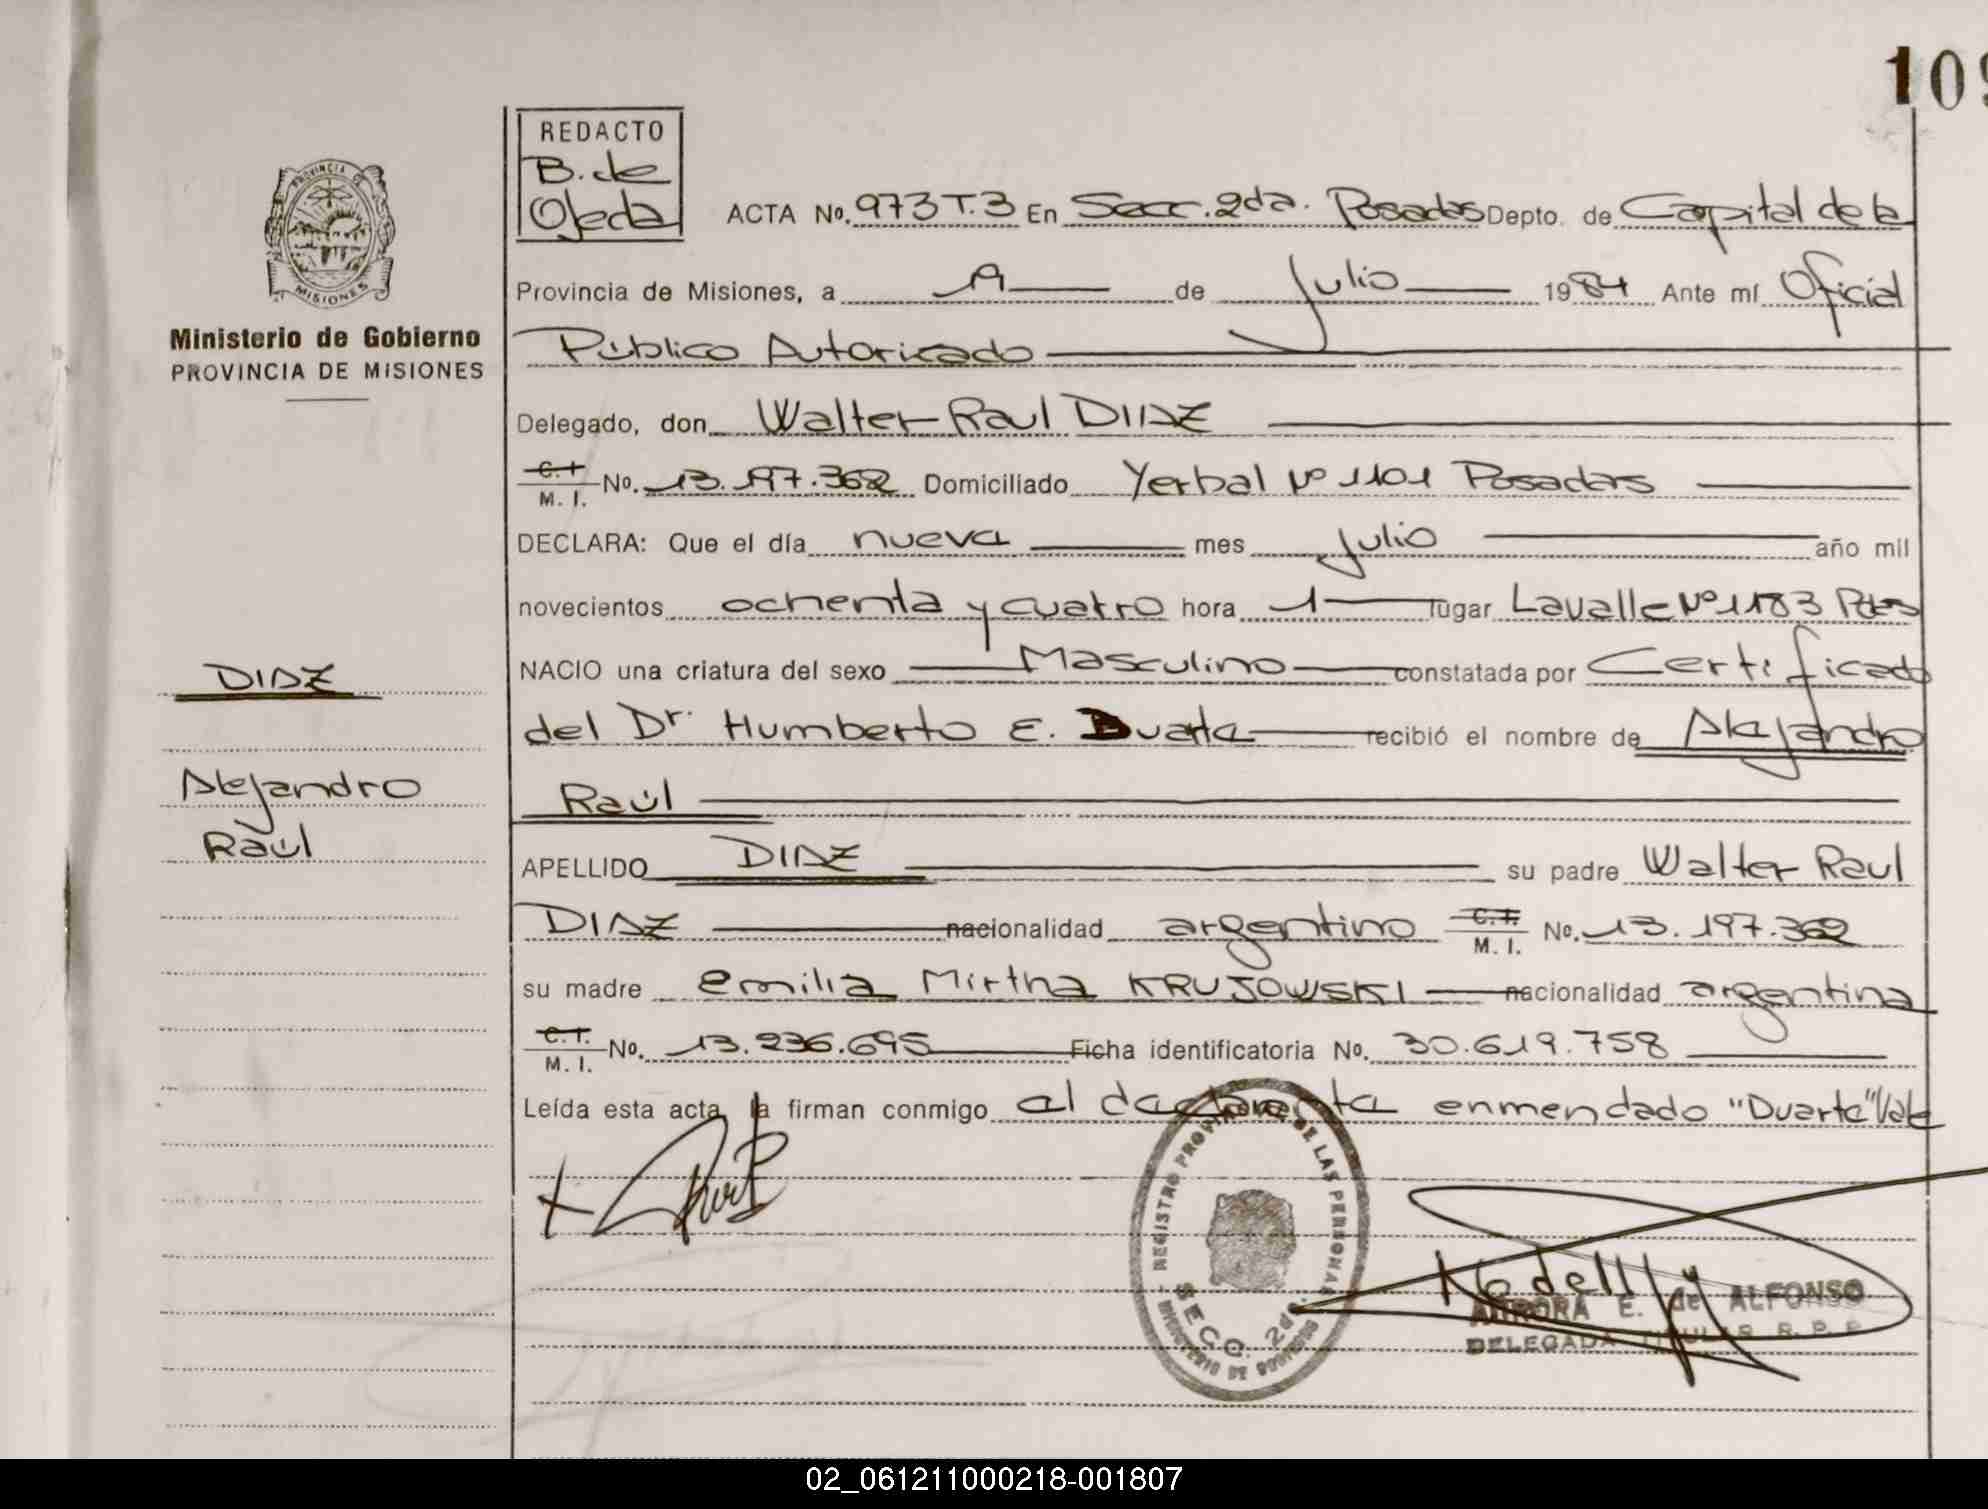 109
REDACTO
B. de
Ojeda
PROVINCIA DE
MISIONES
Ministerio de Gobierno
PROVINCIA DE MISIONES
ACTA No. 973 T.3 En Secc. 2da. Posadas Depto. de Capital de la
Provincia de Misiones, a de Julio 1984 Ante mí Oficial
Público Autorizado
Delegado, don Walter Raul DIIAZ
C.I. M. I. No. 13.197.362 Domiciliado Yerbal Nº 1101 Posadas
DECLARA: Que el día nueva mes julio año mil
novecientos ochenta y cuatro hora 1 lugar Lavalle Nº 1183 Pdas
DIAZ
NACIO una criatura del sexo Masculino constatada por Certificado
del Dr. Humberto E. Duarte recibió el nombre de Alejandro
Alejandro
Raúl
Raúl
APELLIDO DIAZ su padre Walter Raul
DIAZ nacionalidad argentino C.I. M. I. No. 13.197.362
su madre emilia Mirtha KRUJOWSKI nacionalidad argentina
C.I. M. I. No. 13.236.695 Ficha identificatoria No. 30.619.758
Leída esta acta, la firman conmigo el declarante enmendado "Duarte" Vale
REGISTRO PROVINCIAL DE LAS PERSONAS
SECC. 2da.
MINISTERIO DE GOBIERNO
AURORA E. de ALFONSO
DELEGADA TITULAR R. P. P.
02_061211000218-001807